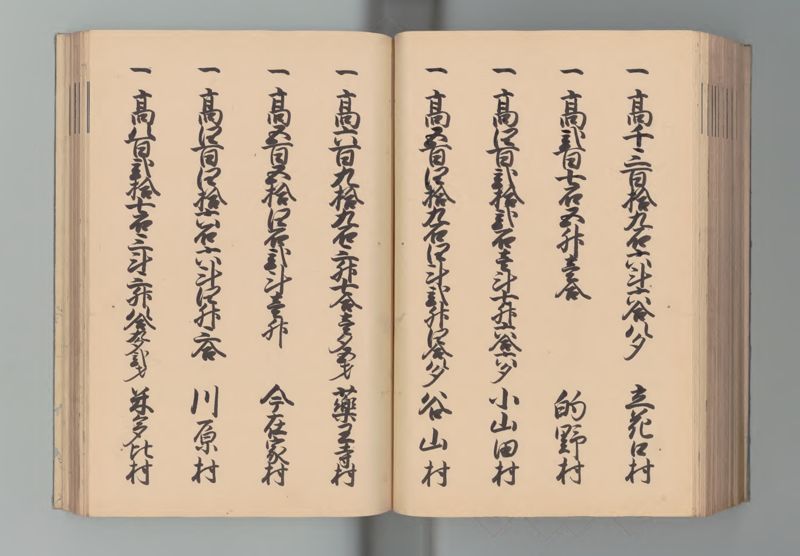 一 高千三百拾九石六斗六合八夕 立花口村
一 高弐百七石五升壱合 的野村
一 高四百弐拾弐石壱斗七升六合六夕 小山田村
一 高五百四拾九石四斗弐升四合八夕 谷山村
一 高六百九拾九石三升七合壱夕五才 薬王寺村
一 高五百五拾四石弐斗壱升 今在家村
一 高四百四拾六石六斗四升三合 川原村
一 高八百弐拾七石三斗三升八合 村